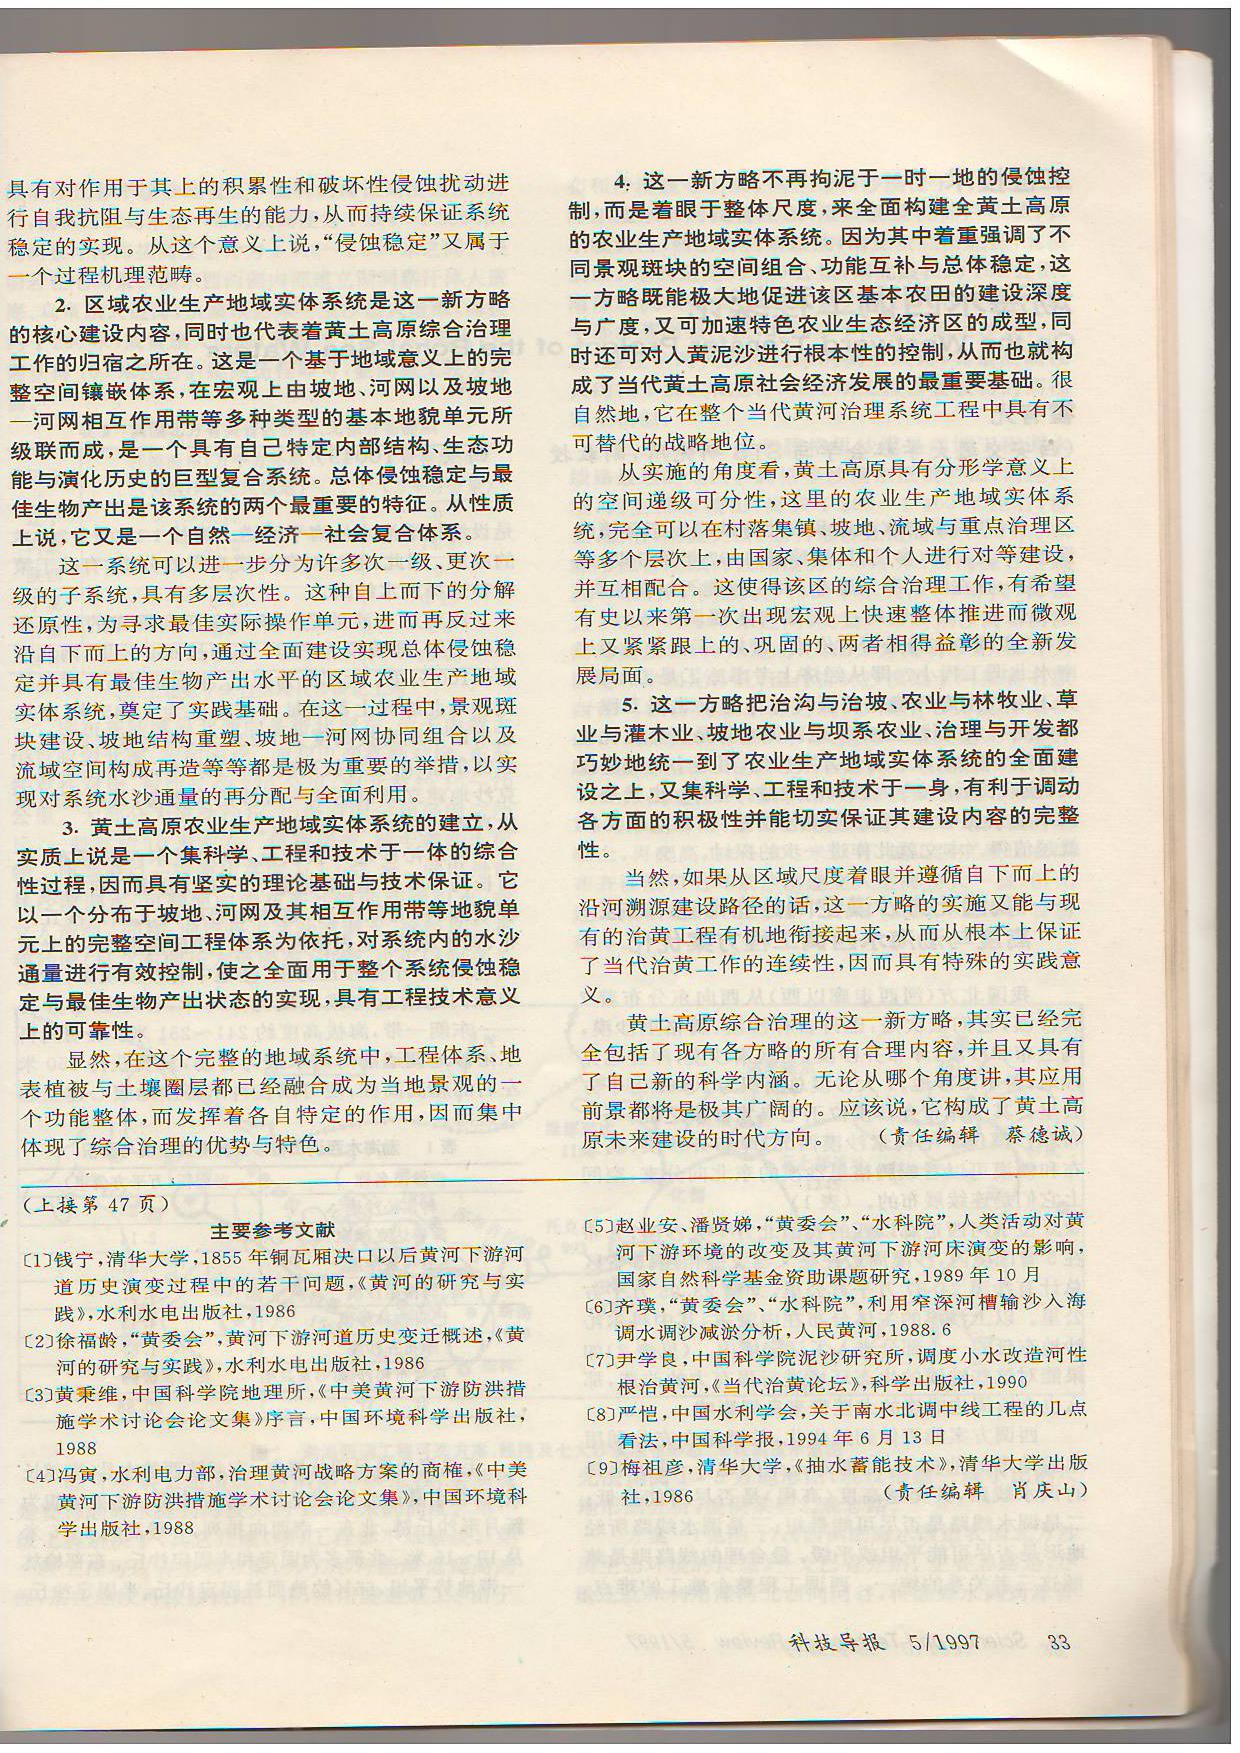 具有对作用于其上的积累性和破坏性侵蚀扰动进
行自我抗阻与生态再生的能力,从而持续保证系统
稳定的实现。从这个意义上说,“侵蚀稳定”又属于
一个过程机理范畴。
2. 区域农业生产地域实体系统是这一新方略
的核心建设内容,同时也代表着黄土高原综合治理
工作的归宿之所在。这是一个基于地域意义上的完
整空间镶嵌体系,在宏观上由坡地、河网以及坡地
—河网相互作用带等多种类型的基本地貌单元所
级联而成,是一个具有自己特定内部结构、生态功
能与演化历史的巨型复合系统。总体侵蚀稳定与最
佳生物产出是该系统的两个最重要的特征。从性质
上说,它又是一个自然—经济—社会复合体系。
这一系统可以进一步分为许多次一级、更次一
级的子系统,具有多层次性。这种自上而下的分解
还原性,为寻求最佳实际操作单元,进而再反过来
沿自下而上的方向,通过全面建设实现总体侵蚀稳
定并具有最佳生物产出水平的区域农业生产地域
实体系统,奠定了实践基础。在这一过程中,景观斑
块建设、坡地结构重塑、坡地—河网协同组合以及
流域空间构成再造等等都是极为重要的举措,以实
现对系统水沙通量的再分配与全面利用。
3. 黄土高原农业生产地域实体系统的建立,从
实质上说是一个集科学、工程和技术于一体的综合
性过程,因而具有坚实的理论基础与技术保证。它
以一个分布于坡地、河网及其相互作用带等地貌单
元上的完整空间工程体系为依托,对系统内的水沙
通量进行有效控制,使之全面用于整个系统侵蚀稳
定与最佳生物产出状态的实现,具有工程技术意义
上的可靠性。
显然,在这个完整的地域系统中,工程体系、地
表植被与土壤圈层都已经融合成为当地景观的一
个功能整体,而发挥着各自特定的作用,因而集中
体现了综合治理的优势与特色。
4. 这一新方略不再拘泥于一时一地的侵蚀控
制,而是着眼于整体尺度,来全面构建全黄土高原
的农业生产地域实体系统。因为其中着重强调了不
同景观斑块的空间组合、功能互补与总体稳定,这
一方略既能极大地促进该区基本农田的建设深度
与广度,又可加速特色农业生态经济区的成型,同
时还可对入黄泥沙进行根本性的控制,从而也就构
成了当代黄土高原社会经济发展的最重要基础。很
自然地,它在整个当代黄河治理系统工程中具有不
可替代的战略地位。
从实施的角度看,黄土高原具有分形学意义上
的空间递级可分性,这里的农业生产地域实体系
统,完全可以在村落集镇、坡地、流域与重点治理区
等多个层次上,由国家、集体和个人进行对等建设,
并互相配合。这使得该区的综合治理工作,有希望
有史以来第一次出现宏观上快速整体推进而微观
上又紧紧跟上的、巩固的、两者相得益彰的全新发
展局面。
5. 这一方略把治沟与治坡、农业与林牧业、草
业与灌木业、坡地农业与坝系农业、治理与开发都
巧妙地统一到了农业生产地域实体系统的全面建
设之上,又集科学、工程和技术于一身,有利于调动
各方面的积极性并能切实保证其建设内容的完整
性。
当然,如果从区域尺度着眼并遵循自下而上的
沿河溯源建设路径的话,这一方略的实施又能与现
有的治黄工程有机地衔接起来,从而从根本上保证
了当代治黄工作的连续性,因而具有特殊的实践意
义。
黄土高原综合治理的这一新方略,其实已经完
全包括了现有各方略的所有合理内容,并且又具有
了自己新的科学内涵。无论从哪个角度讲,其应用
前景都将是极其广阔的。应该说,它构成了黄土高
原未来建设的时代方向。 (责任编辑 蔡德诚)
(上接第 47 页)
主要参考文献
〔1〕钱宁,清华大学,1855 年铜瓦厢决口以后黄河下游河
道历史演变过程中的若干问题,《黄河的研究与实
践》,水利水电出版社,1986
〔2〕徐福龄,“黄委会”,黄河下游河道历史变迁概述,《黄
河的研究与实践》,水利水电出版社,1986
〔3〕黄秉维,中国科学院地理所,《中美黄河下游防洪措
施学术讨论会论文集》序言,中国环境科学出版社,
1988
〔4〕冯寅,水利电力部,治理黄河战略方案的商榷,《中美
黄河下游防洪措施学术讨论会论文集》,中国环境科
学出版社,1988
〔5〕赵业安、潘贤娣,“黄委会”、“水科院”,人类活动对黄
河下游环境的改变及其黄河下游河床演变的影响,
国家自然科学基金资助课题研究,1989 年 10 月
〔6〕齐璞,“黄委会”、“水科院”,利用窄深河槽输沙入海
调水调沙减淤分析,人民黄河,1988. 6
〔7〕尹学良,中国科学院泥沙研究所,调度小水改造河性
根治黄河,《当代治黄论坛》,科学出版社,1990
〔8〕严恺,中国水利学会,关于南水北调中线工程的几点
看法,中国科学报,1994 年 6 月 13 日
〔9〕梅祖彦,清华大学,《抽水蓄能技术》,清华大学出版
社,1986 (责任编辑 肖庆山)
科技导报 5/1997 33